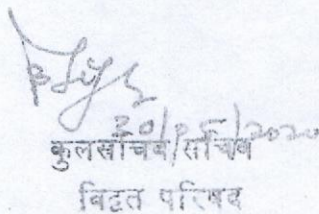 20/05/2020
कुलसचिव/सचिव
विद्वत परिषद